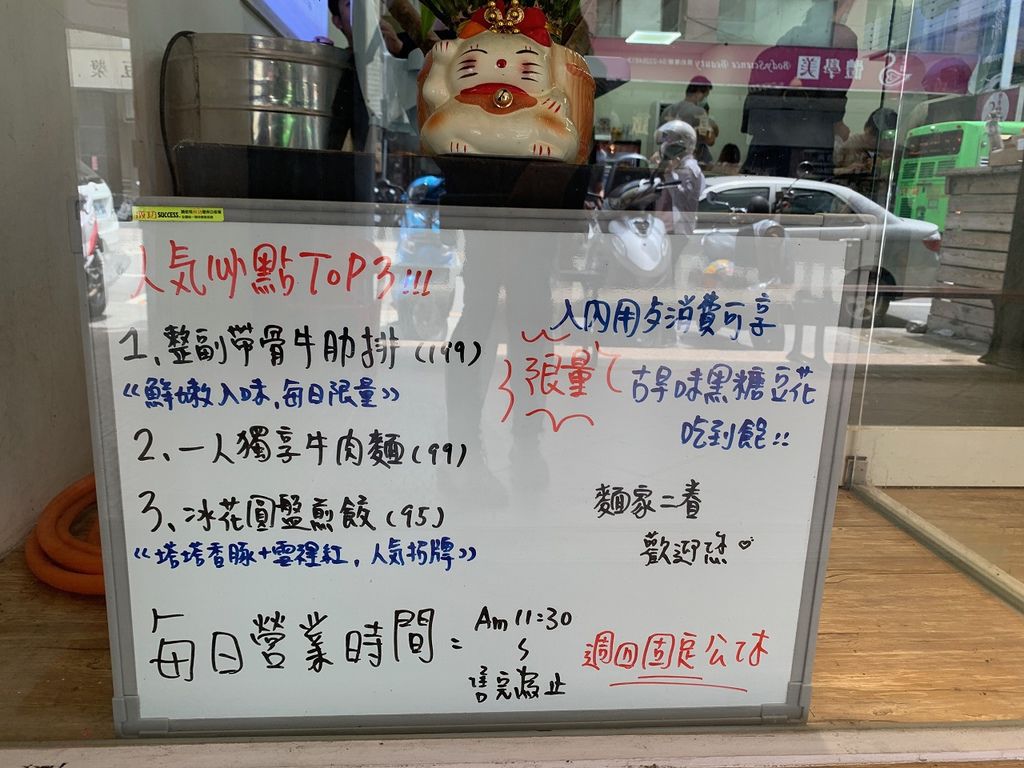 體學美
BodyScience Beauty
成功 SUCCESS
人氣炒點TOP3!!!
1、整副帶骨牛肋排(199)
《鮮嫩入味,每日限量》
2、一人獨享牛肉麵(99)
3、冰花圓盤煎餃(95)
《塔塔香豚+雪裡紅,人氣招牌》
入內用夕消費可享
限量
古早味黑糖豆花
吃到飽!!
麵家二賣
歡迎您♡
每日營業時間:
Am 11:30
售完為止
週四固定公休